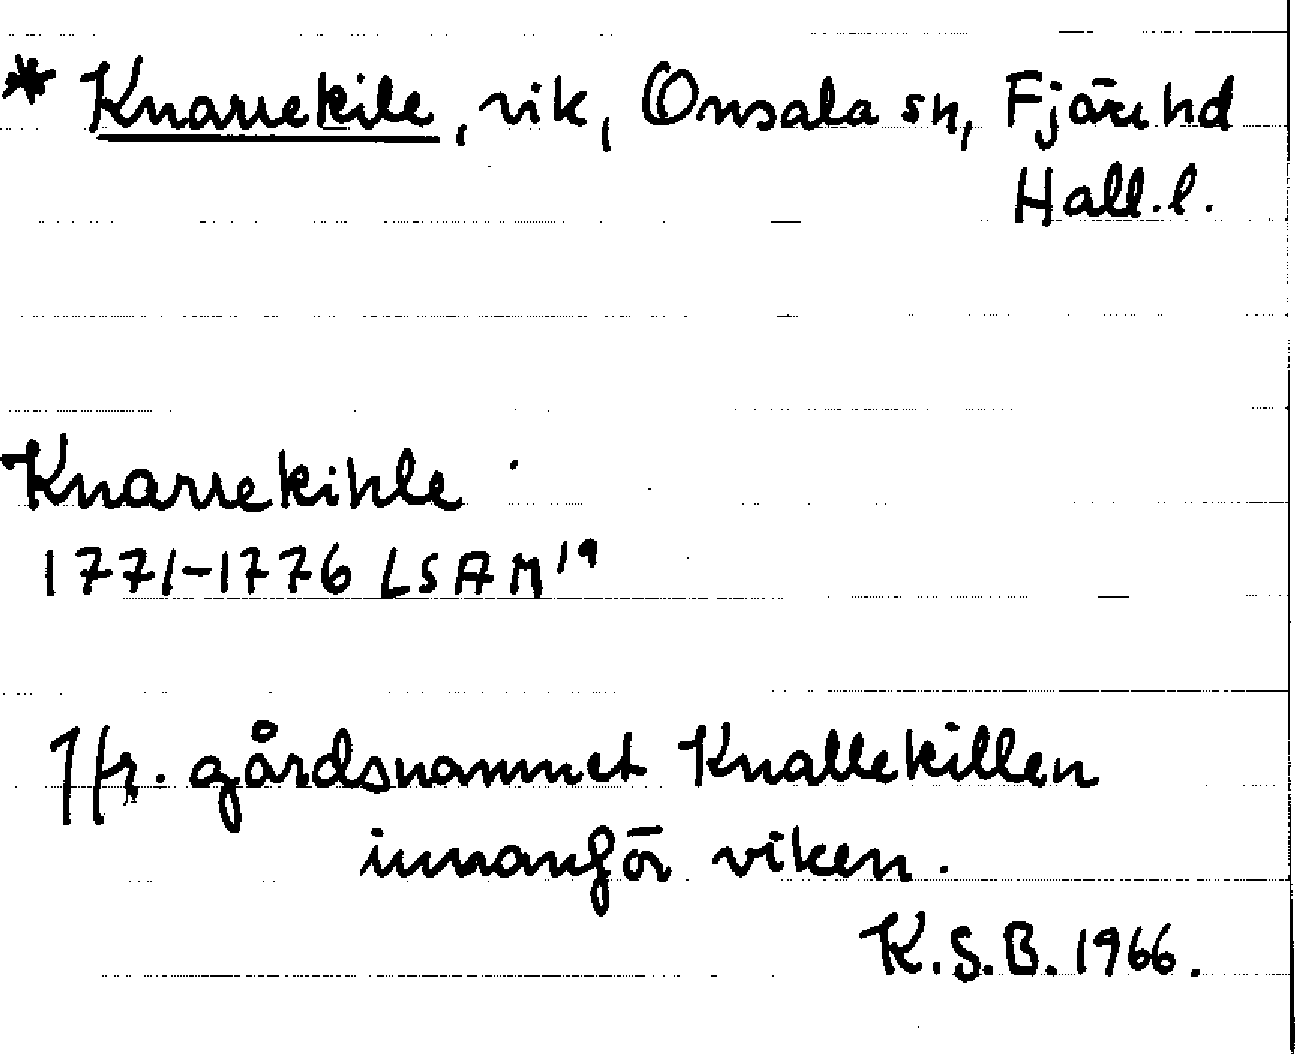 * Knarrekile, vik, Onsala sn, Fjäre hd
Hall.l.
Knarrekihle
1771-1776 LSA M¹⁹
Jfr. gårdsnamnet Knallekillen
innanför viken.
K.S.B. 1966.